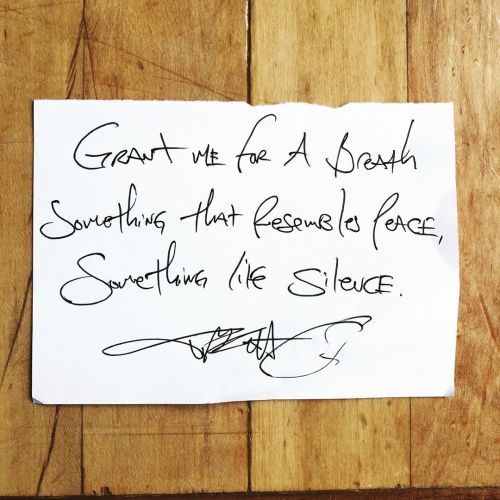 Grant me for a Breath
Something that Resembles Peace,
Something like Silence.